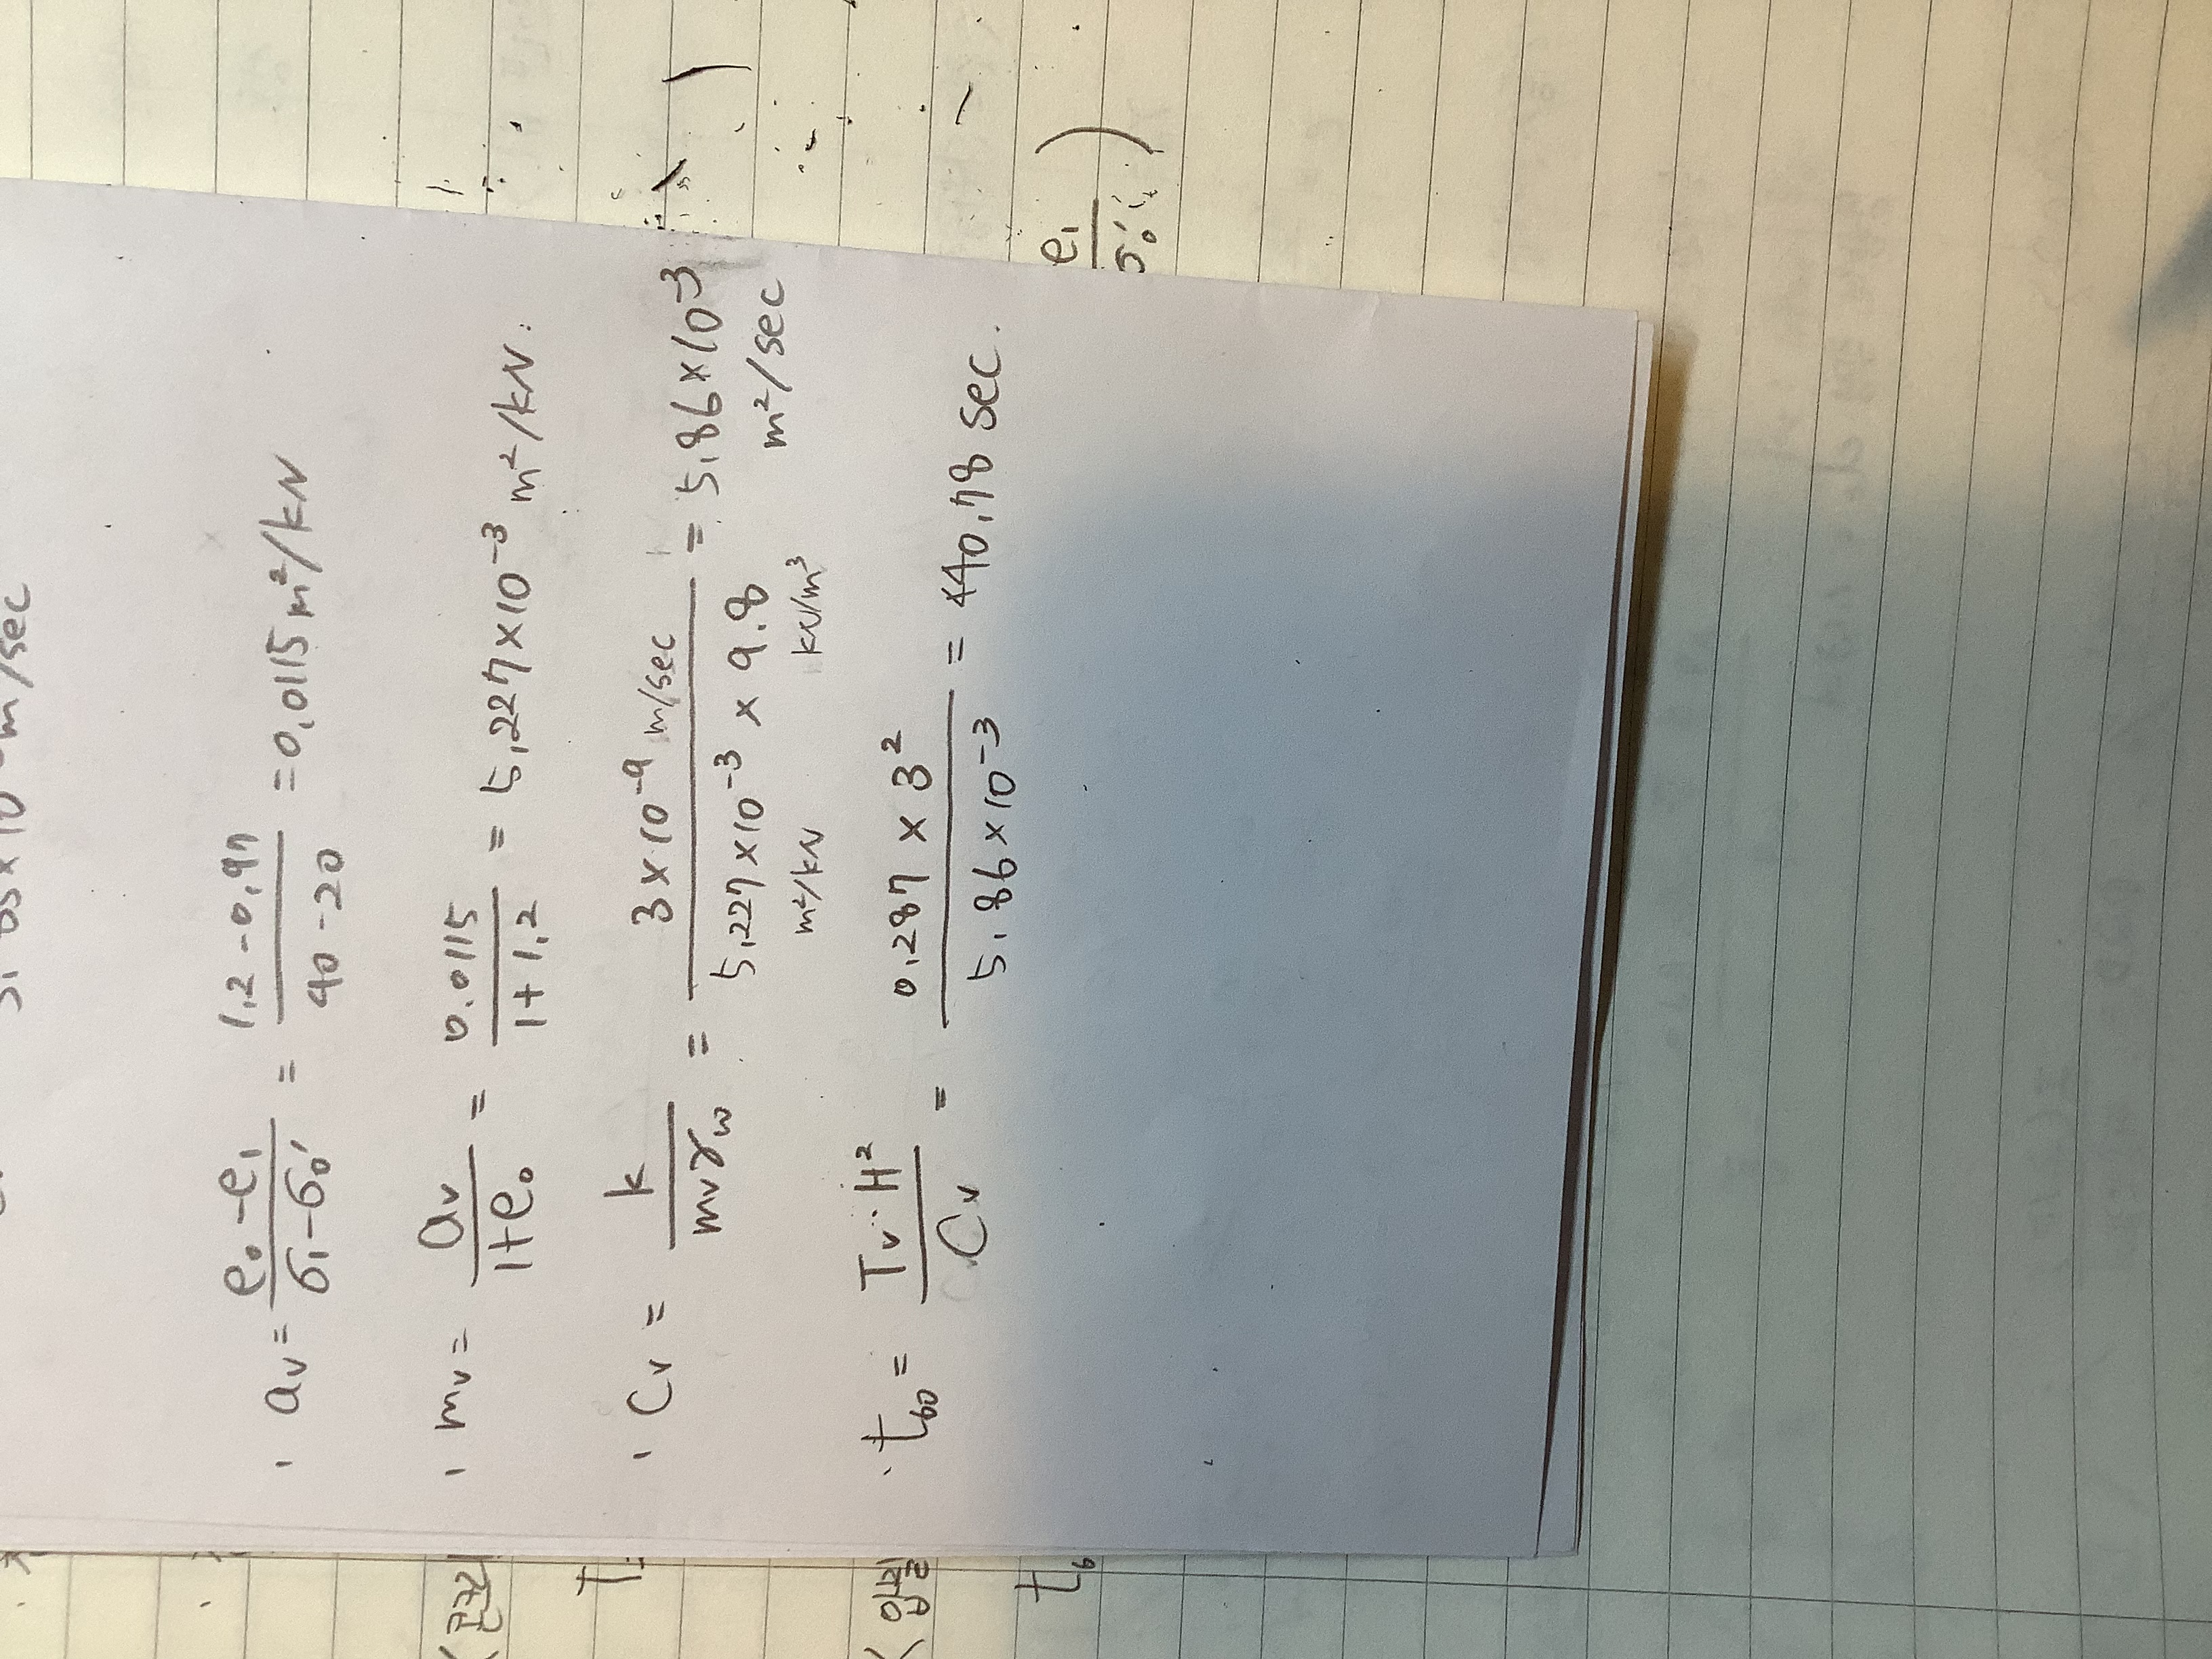 m/sec
· av = e₀ - e₁ / σ₁ - σ₀' = 1.2 - 0.97 / 40 - 20 = 0.0115 m²/kN
· mv = av / 1+e₀ = 0.0115 / 1+1.2 = 5.227 × 10⁻³ m²/kN.
· Cv = k / mv γw = 3 × 10⁻⁹ m/sec / 5.227 × 10⁻³ m²/kN × 9.8 kN/m³ = 5.86 × 10⁻³ m²/sec
· t₆₀ = Tv · H² / Cv = 0.287 × 3² / 5.86 × 10⁻³ = 440.78 sec.
e₁